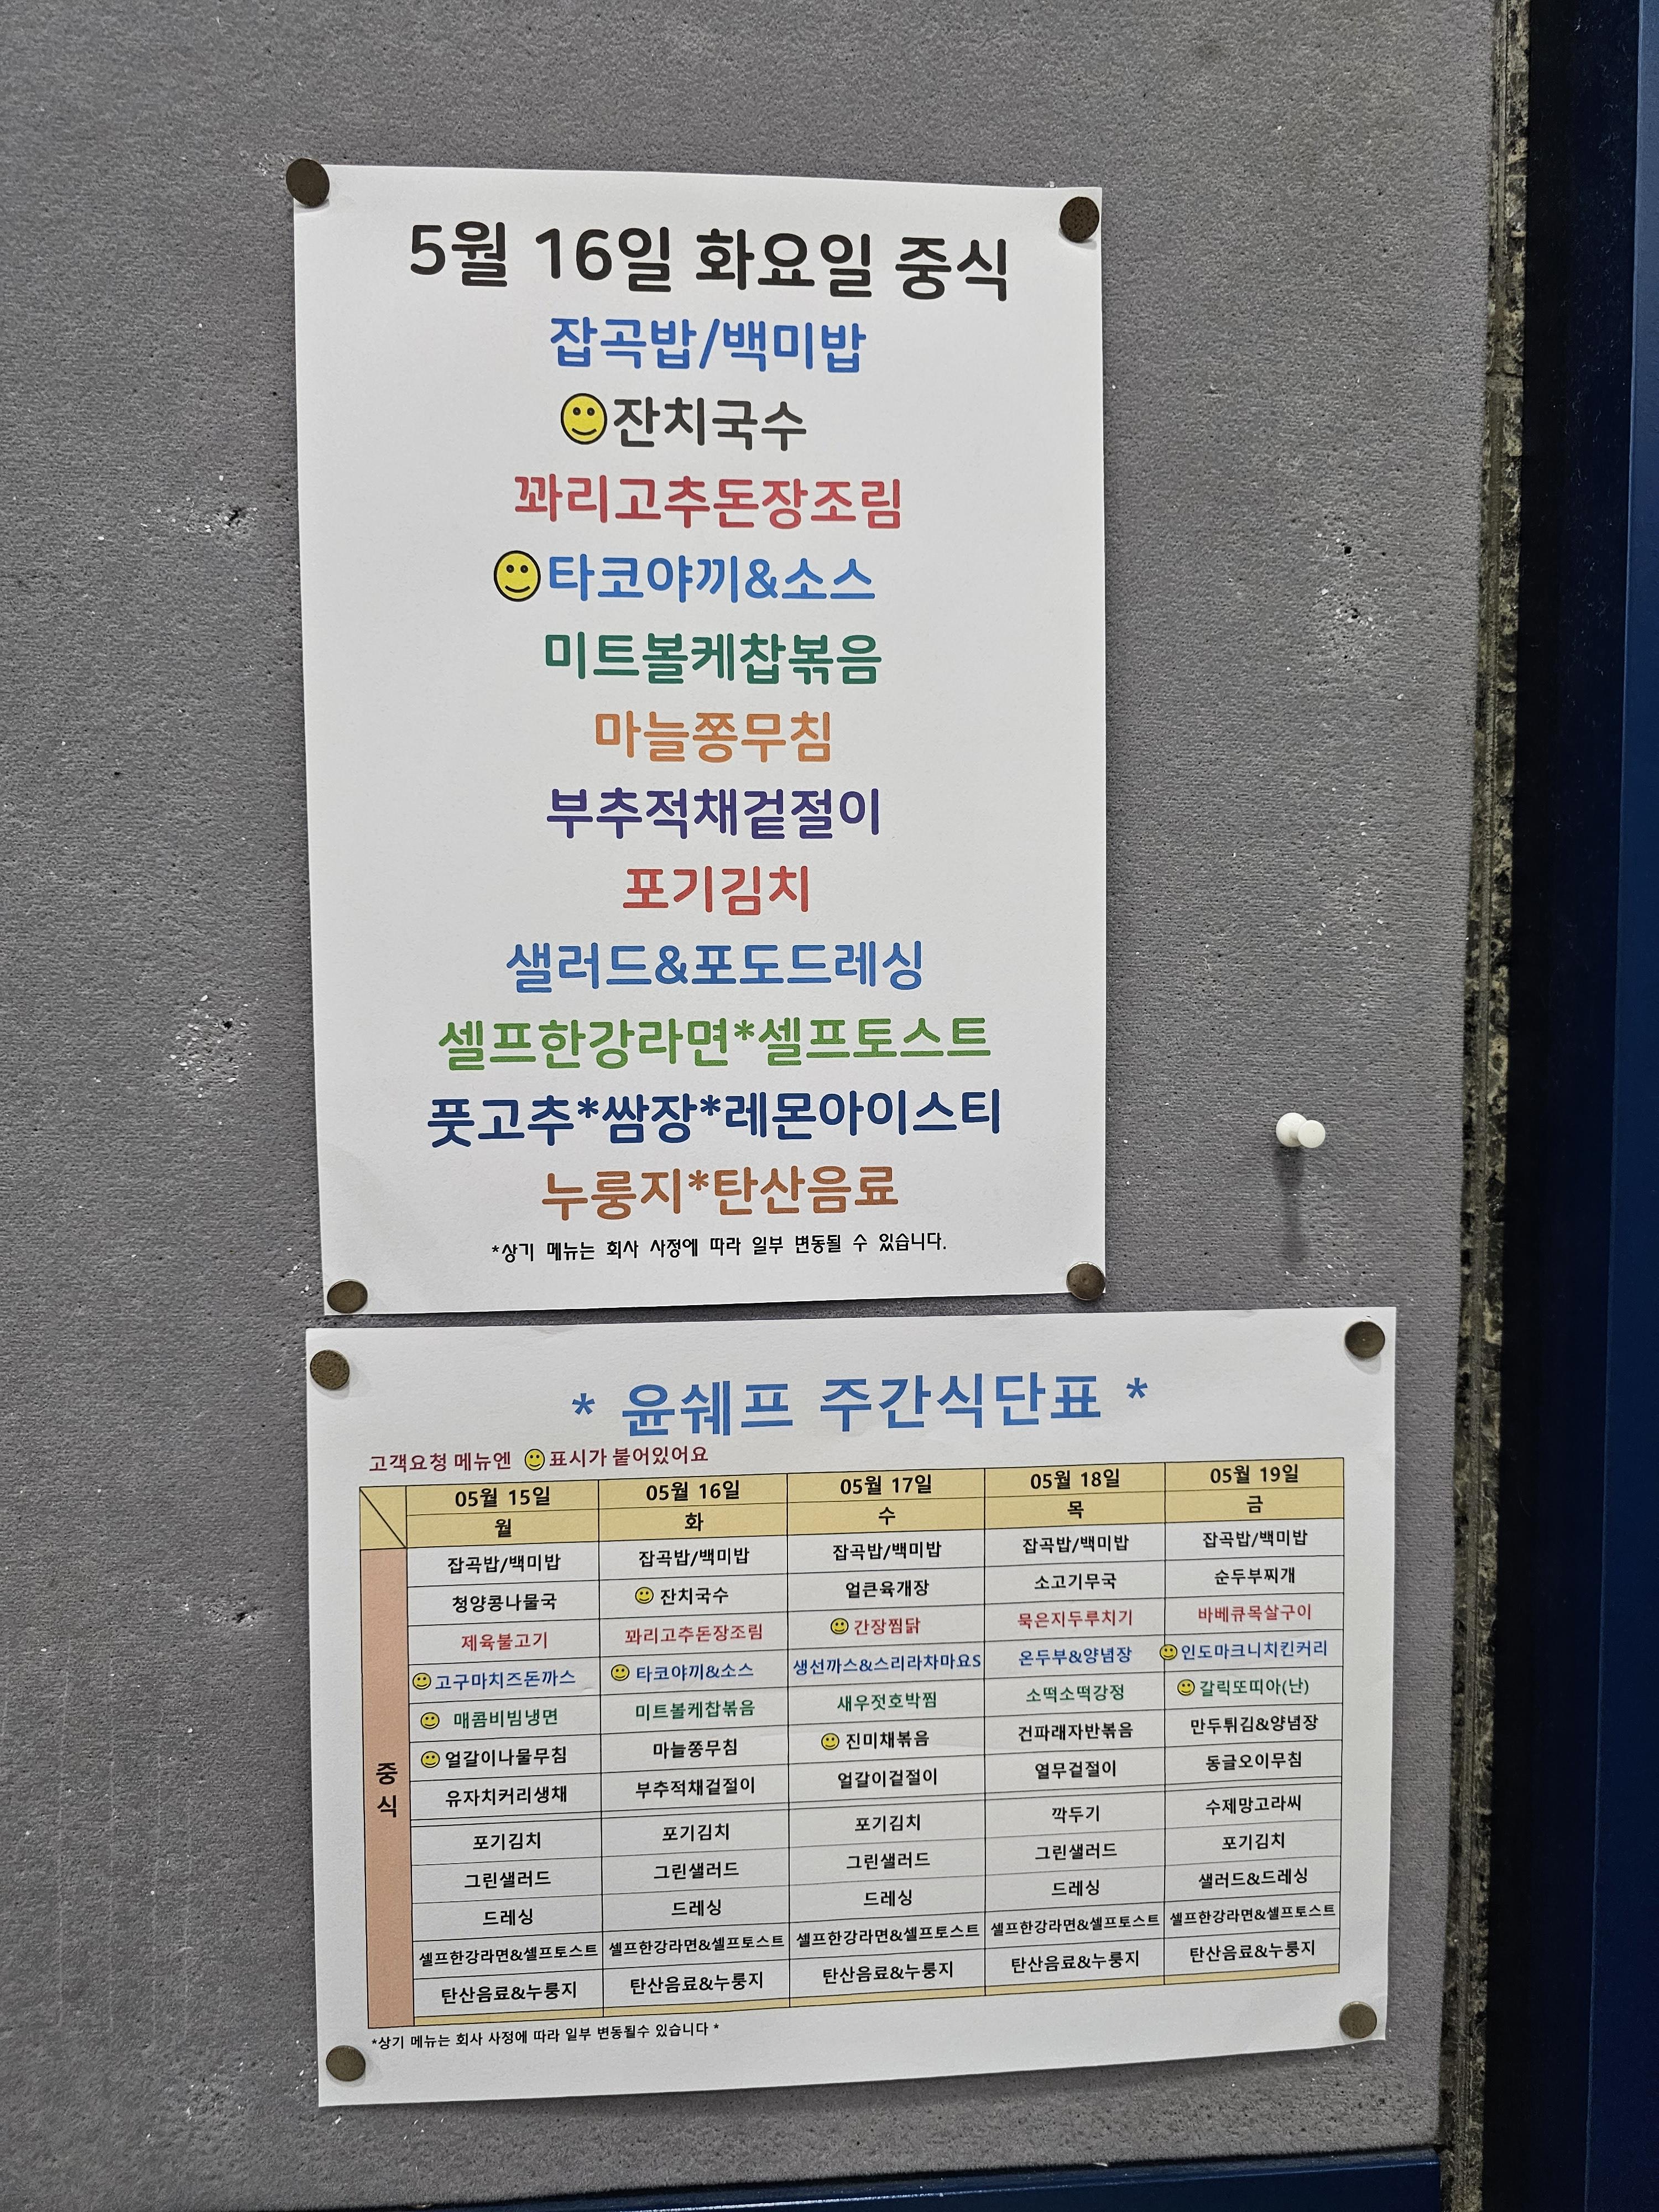 5월 16일 화요일 중식
잡곡밥/백미밥
잔치국수
꽈리고추돈장조림
타코야끼&소스
미트볼케찹볶음
마늘쫑무침
부추적채겉절이
포기김치
샐러드&포도드레싱
셀프한강라면*셀프토스트
풋고추*쌈장*레몬아이스티
누룽지*탄산음료
*상기 메뉴는 회사 사정에 따라 일부 변동될 수 있습니다.
* 윤쉐프 주간식단표 *
고객요청 메뉴엔 표시가 붙어있어요
05월 15일 05월 16일 05월 17일 05월 18일 05월 19일
월 화 수 목 금
중식
잡곡밥/백미밥 잡곡밥/백미밥 잡곡밥/백미밥 잡곡밥/백미밥 잡곡밥/백미밥
청양콩나물국 잔치국수 얼큰육개장 소고기무국 순두부찌개
제육불고기 꽈리고추돈장조림 간장찜닭 묵은지두루치기 바베큐목살구이
고구마치즈돈까스 타코야끼&소스 생선까스&스리라차마요S 온두부&양념장 인도마크니치킨커리
매콤비빔냉면 미트볼케찹볶음 새우젓호박찜 소떡소떡강정 갈릭또띠아(난)
얼갈이나물무침 마늘쫑무침 진미채볶음 건파래자반볶음 만두튀김&양념장
유자치커리생채 부추적채겉절이 얼갈이겉절이 열무겉절이 동글오이무침
포기김치 포기김치 포기김치 깍두기 수제망고라씨
그린샐러드 그린샐러드 그린샐러드 그린샐러드 포기김치
드레싱 드레싱 드레싱 드레싱 샐러드&드레싱
셀프한강라면&셀프토스트 셀프한강라면&셀프토스트 셀프한강라면&셀프토스트 셀프한강라면&셀프토스트 셀프한강라면&셀프토스트
탄산음료&누룽지 탄산음료&누룽지 탄산음료&누룽지 탄산음료&누룽지 탄산음료&누룽지
*상기 메뉴는 회사 사정에 따라 일부 변동될수 있습니다 *